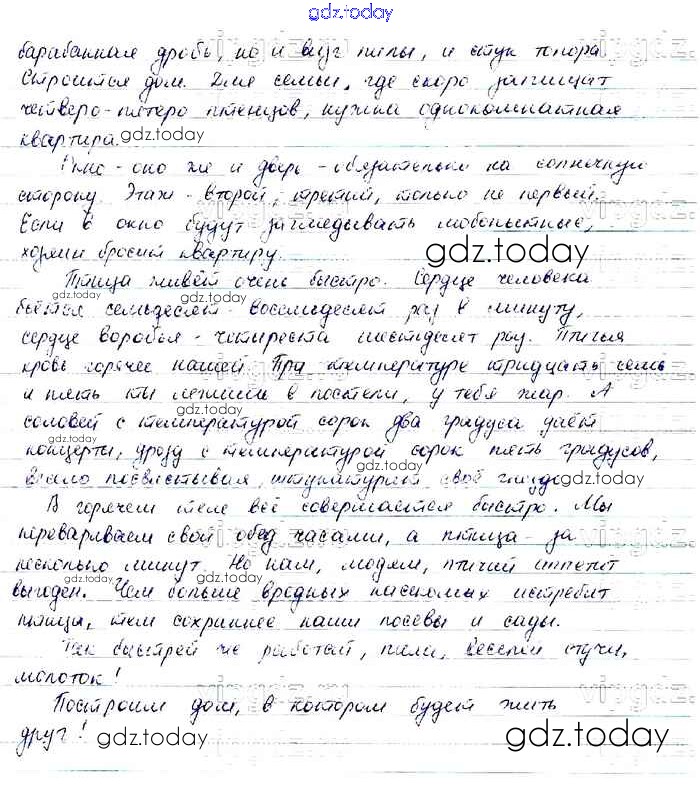 gdz.today
барабанная дробь, но и визг пилы, и стук топора.
Строится дом. Для семьи, где скоро запищат
четверо-пятеро птенцов, нужна однокомнатная
квартира.
gdz.today
Окно - оно же и дверь - обязательно на солнечную
сторону. Этаж - второй, третий, только не первый.
gdz.today
Если в окно будут заглядывать любопытные,
хозяин бросит квартиру.
gdz.today
Птица живёт очень быстро. Сердце человека
бьётся семьдесят - восемьдесят раз в минуту,
gdz.today
сердце воробья - четыреста шестьдесят раз. Птичья
кровь горячее нашей. При температуре тридцать семь
и пять ты лежишь в постели, у тебя жар. А
gdz.today
соловей с температурой сорок два градуса даёт
gdz.today
концерты, дрозд с температурой сорок пять градусов,
весело посвистывая, штукатурит своё гнездо.
gdz.today
gdz.today
В горячем теле всё совершается быстро. Мы
перевариваем свой обед часами, а птица - за
несколько минут. Но нам, людям, птичий аппетит
gdz.today
gdz.today
выгоден. Чем больше вредных насекомых истребят
птицы, тем сохраннее наши посевы и сады.
Так быстрей же работай, пила, веселей стучи,
молоток!
Построим дом, в котором будет жить
друг!
gdz.today
gdz.today
gdz.today